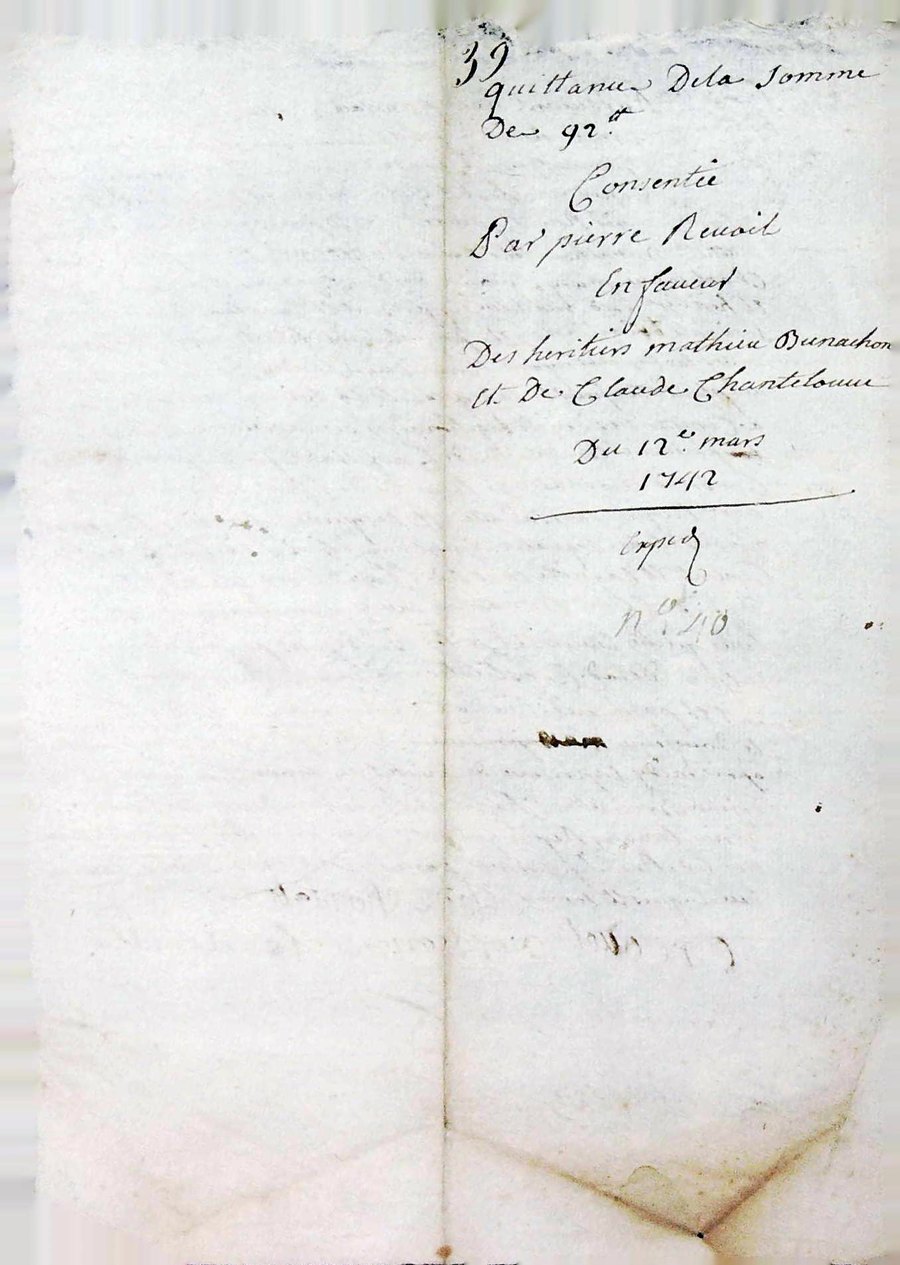 39
quittance Dela Somme
De 92.tt
Consentie
Par pierre Revoil
En faveur
Des heritiers mathieu Bunachon
et De Claude Chantelouue
Du 12e. mars
1742
Expéd
n.º 40